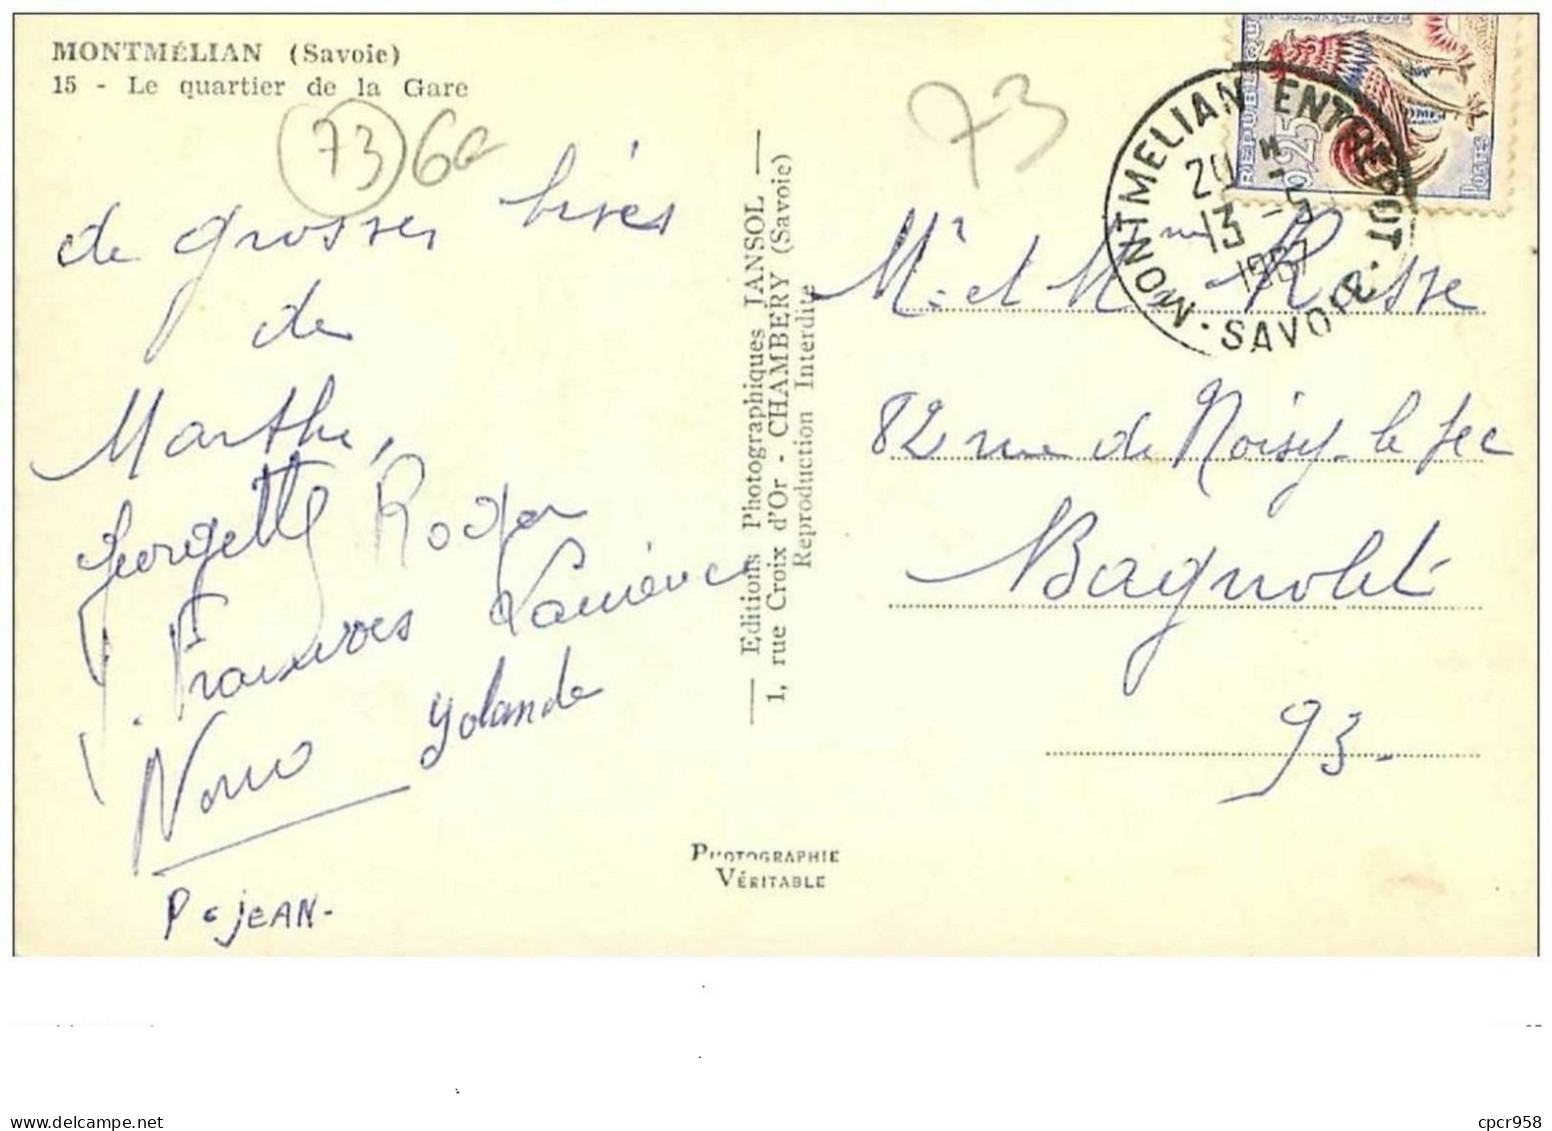 MONTMÉLIAN (Savoie)
15 - Le quartier de la Gare
73
73
de grosses bises
de
Marthe,
Georgette Roger
Françoises Laurence
Nono Yolande
P. JEAN-
Editions Photographiques JANSOL
1, rue Croix d'Or - CHAMBÉRY (Savoie)
Reproduction Interdite
PHOTOGRAPHIE
VÉRITABLE
REPUBLIQUE FRANÇAISE
0,25
POSTES
MONTMELIAN ENTREPOT
20 H
13 -5
1967
SAVOIE
Mr et Mme Rosse
82 rue de Noisy-le sec
Bagnolet
93-
www.delcampe.net
cpcr958